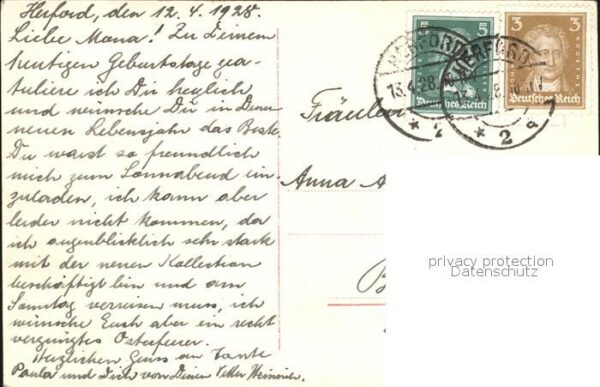 Herford, den 12. 4. 1928.
Liebe Mona! Zu Deinem
heutigen Geburtstage gra-
tuliere ich Dir herzlich
und wünsche Dir in Deinem
neuen Lebensjahr das Beste.
Du warst so freundlich
mich zum Sonnabend ein-
zuladen, ich kann aber
leider nicht kommen, da
ich augenblicklich sehr stark
mit der neuen Kollektion
beschäftigt bin und am
Sonntag verreisen muss, ich
wünsche Euch aber ein recht
vergnügtes
Herzlichen Gruss an Tante
Paula und Dich von Deinem Vetter Heinrich.
5 5
Deutsches Reich
3 3
Deutsches Reich
HERFORD
13.4.28.
* 2
HERFORD
* 2 a
Fräulein
Anna A
B
privacy protection
Datenschutz